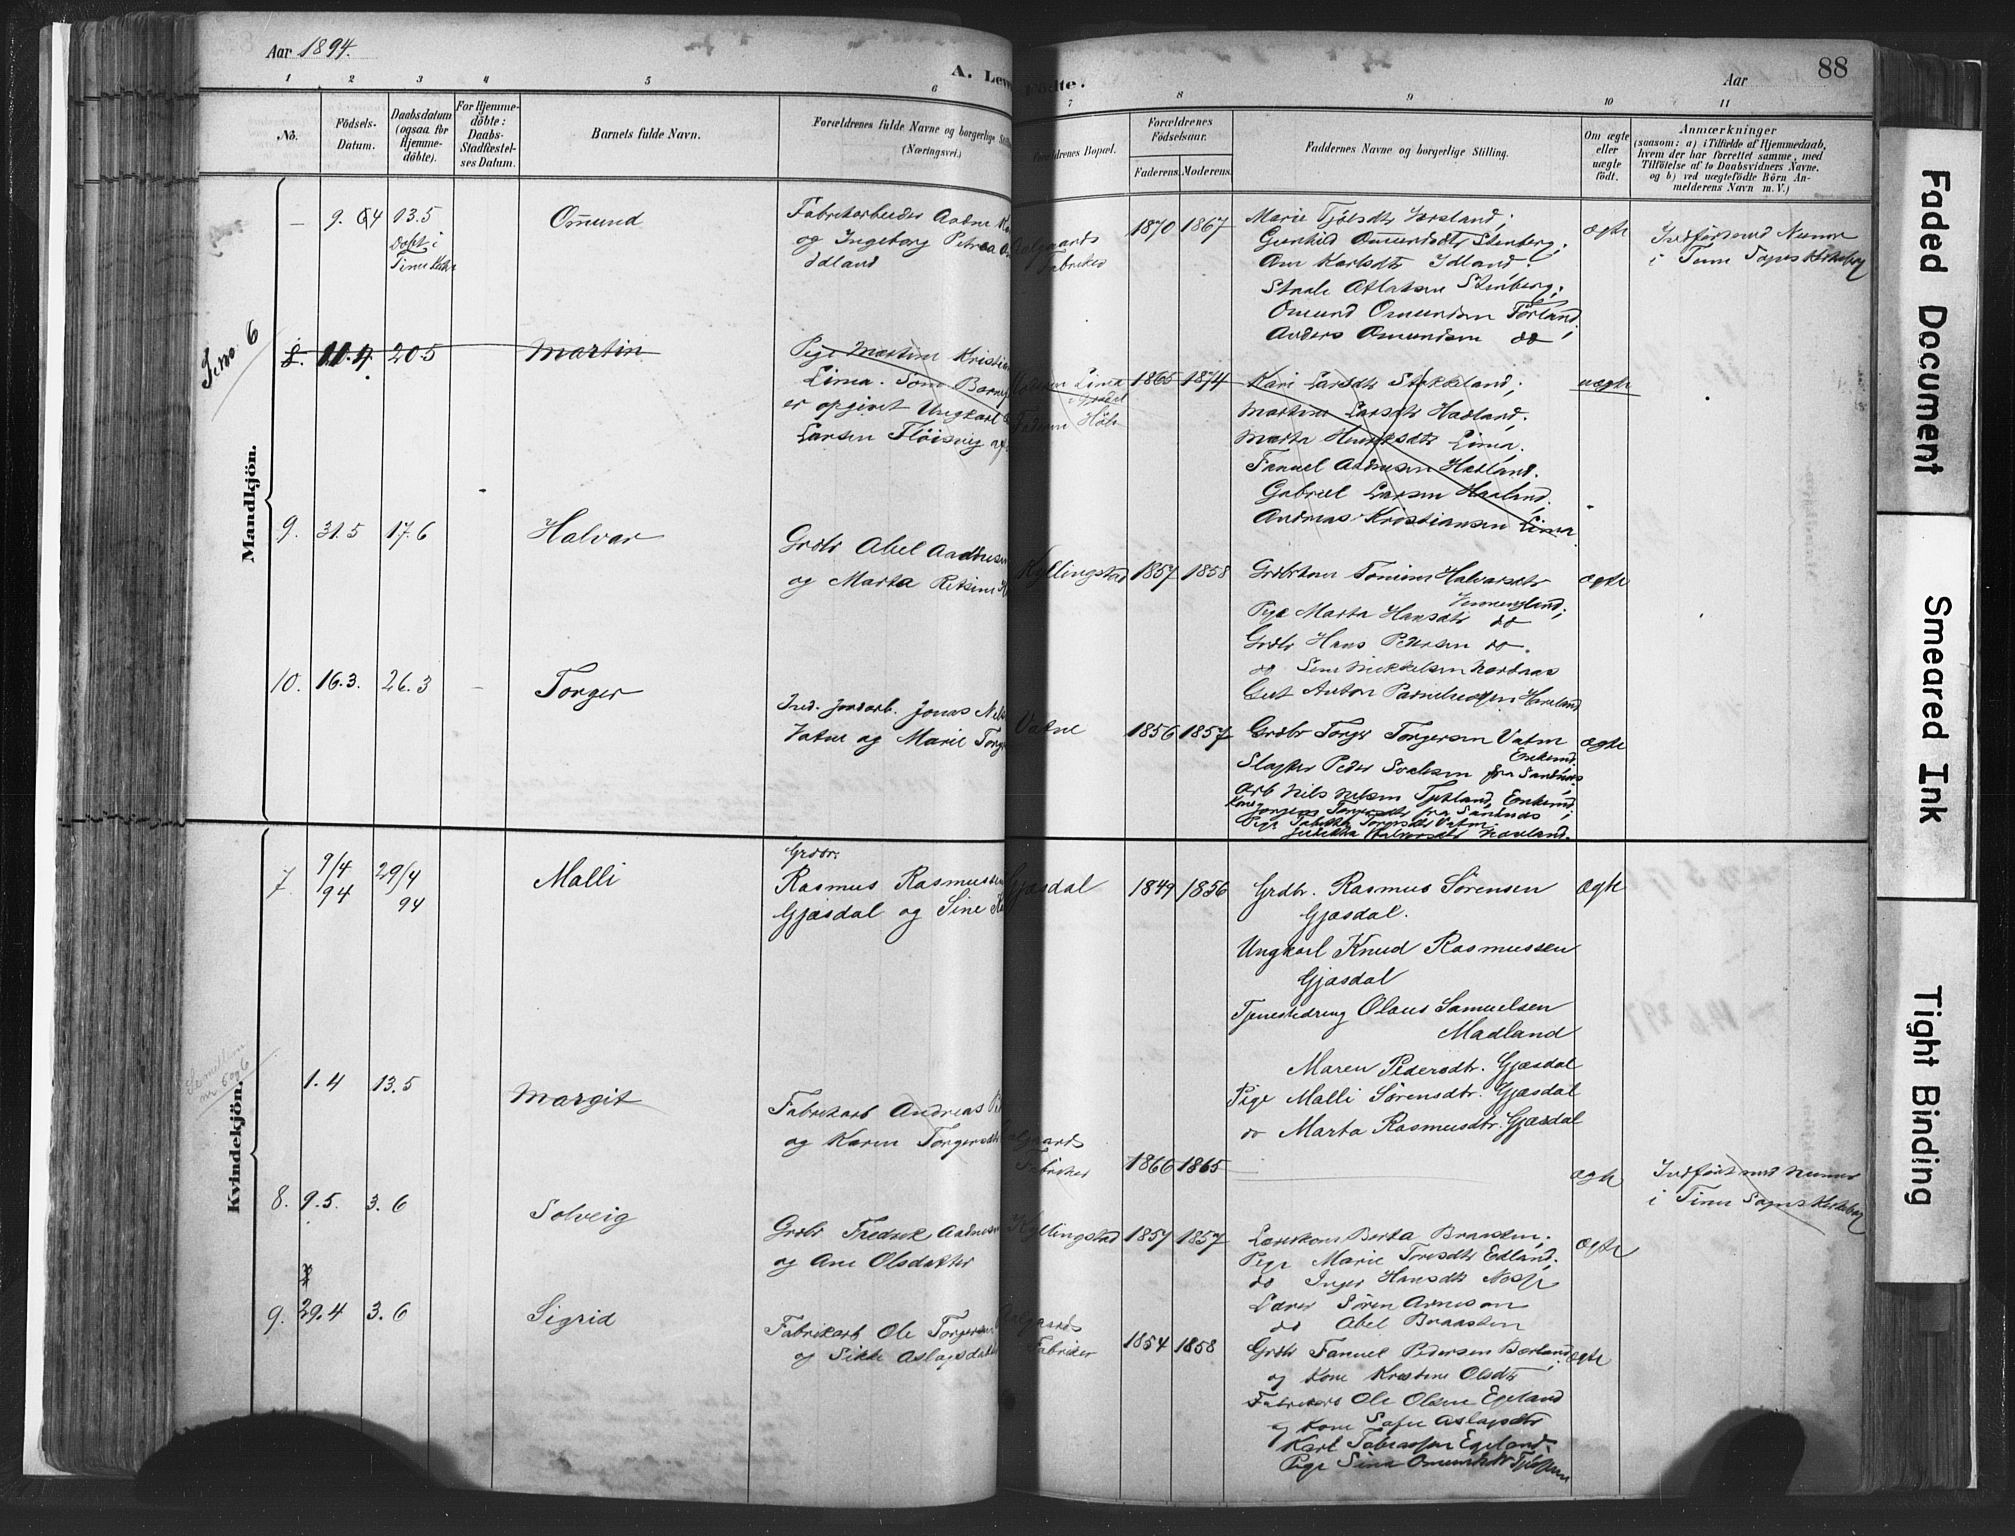 Aar 1894.
A. Lev
Födte.
Aar
88
1 2 3 4 5 6 7 8 9 10 11
No.
Födsels-
Datum.
Daabsdatum
(ogsaa for
Hjemme-
döbte).
For Hjemme-
döbte:
Daabs-
Stadfæstel-
ses Datum.
Barnets fulde Navn.
Forældrenes fulde Navne og borgerlige Stilling
(Næringsvei.)
Forældrenes Bopæl.
Forældrenes
Födselsaar.
Faderens. Moderens.
Faddernes Navne og borgerlige Stilling.
Om ægte
eller
uægte
födt.
Anmærkninger
(saasom: a) i Tilfælde af Hjemmedaab,
hvem der har forrettet samme, med
Tilföielse af to Daabsvidners Navne.
og b) ved uægtefödte Börn An-
melderens Navn m. V.)
Mandkjön.
9. 4 13.5
Döbt i
Time Kirke
Omund
Fabrikarbeider Aadne
og Ingeborg Petrea
Idland
Aalgaards
Fabriker
1870 1867
Marie
Gunhild Omundsdtr Stenberg;
Ane Karlsdtr Idland.
Staale Atlaksen Stenberg;
Omund Omundsen Förland
Anders Omundsen do
ægte
Indfört med Numer
i Time Sogns Kirkebog
Se no. 6
8. 11.4 20.5
Martin
Pige Martine Kristia
Lima. Som Barnef
er opgivet Ungkarl
Larsen Flöisvig af
Moderen Lima
Faderen
1865 1874
Kari Larsdtr Stokkeland;
Martine Larsdtr Haaland;
Marta Henriksdtr Lima.
Fanuel Aadnesen Haaland.
Gabriel Larsen Haaland.
Andreas Kristiansen Lima
uægte
9. 31.5 17.6
Halvar
Grdbr Abel Aadnesen
og Marta
Kyllingstad
1857 1858
Halvarsdtr
Pige Marta Hansdtr do
Grdbr Hans Pedersen do.
do
Anton
ægte
10. 16.3. 26.3
Torger
Ind. Jordarb. Jonas Nels
Vatne og Marie Torge
Vatne
1856 1857
Grdbr Torger Torgersen Vatne
Slagter Peder fra Sandnes
Arb Nils Nelsen Tjetland, Enkemd
Kone Torgersdtr fra Sandnes
Pige Torgersdtr Vatne
ægte
Kvindekjön.
7. 9/4 94 29/4 94
Malli
Grdbr.
Rasmus Rasmussen
Gjæsdal og Sine
Gjæsdal
1849 1856
Grdbr. Rasmus Sörensen
Gjæsdal.
Ungkarl Knud Rasmussen
Gjæsdal
Tjenestedreng Olaus Samuelsen
Madland
Maren Pedersdtr. Gjæsdal
Pige Malli Sörensdtr. Gjæsdal
do Marta Rasmusdtr. Gjæsdal
Ægte
Se mellem
nr 5 og 6
1.4 13.5
Margit
Fabrikarb Andreas
og Karen Torgersdtr
Aalgaards
Fabriker
1866 1865
ægte
Indfört med Numer
i Time Sogns Kirkebog
8. 9.5. 3.6
Solveig
Grdbr Fredrik Aadnesen
og Ane Olsdatter
Kyllingstad
1857 1857
Lærerkone Berta Braasten;
Pige Marie Edland;
do Inger Hansdtr
Lærer Sören Arneson
do Abel Braasten
Ægte
9. 29.4 3.6
Sigrid
Fabrikarb Ole Torgersen
og Sikke Aslagsdatter
Aalgaards
Fabriker
1854 1858
Grdbr Fanuel Pedersen Bærland,
og Kone Kristine Olsdtr
Fabrikarb Ole Olsen Egeland
og Kone Aslagsdtr
Karl Egeland;
Pige Sina Omundsdtr
ægte
Faded Document
Smeared Ink
Tight Binding